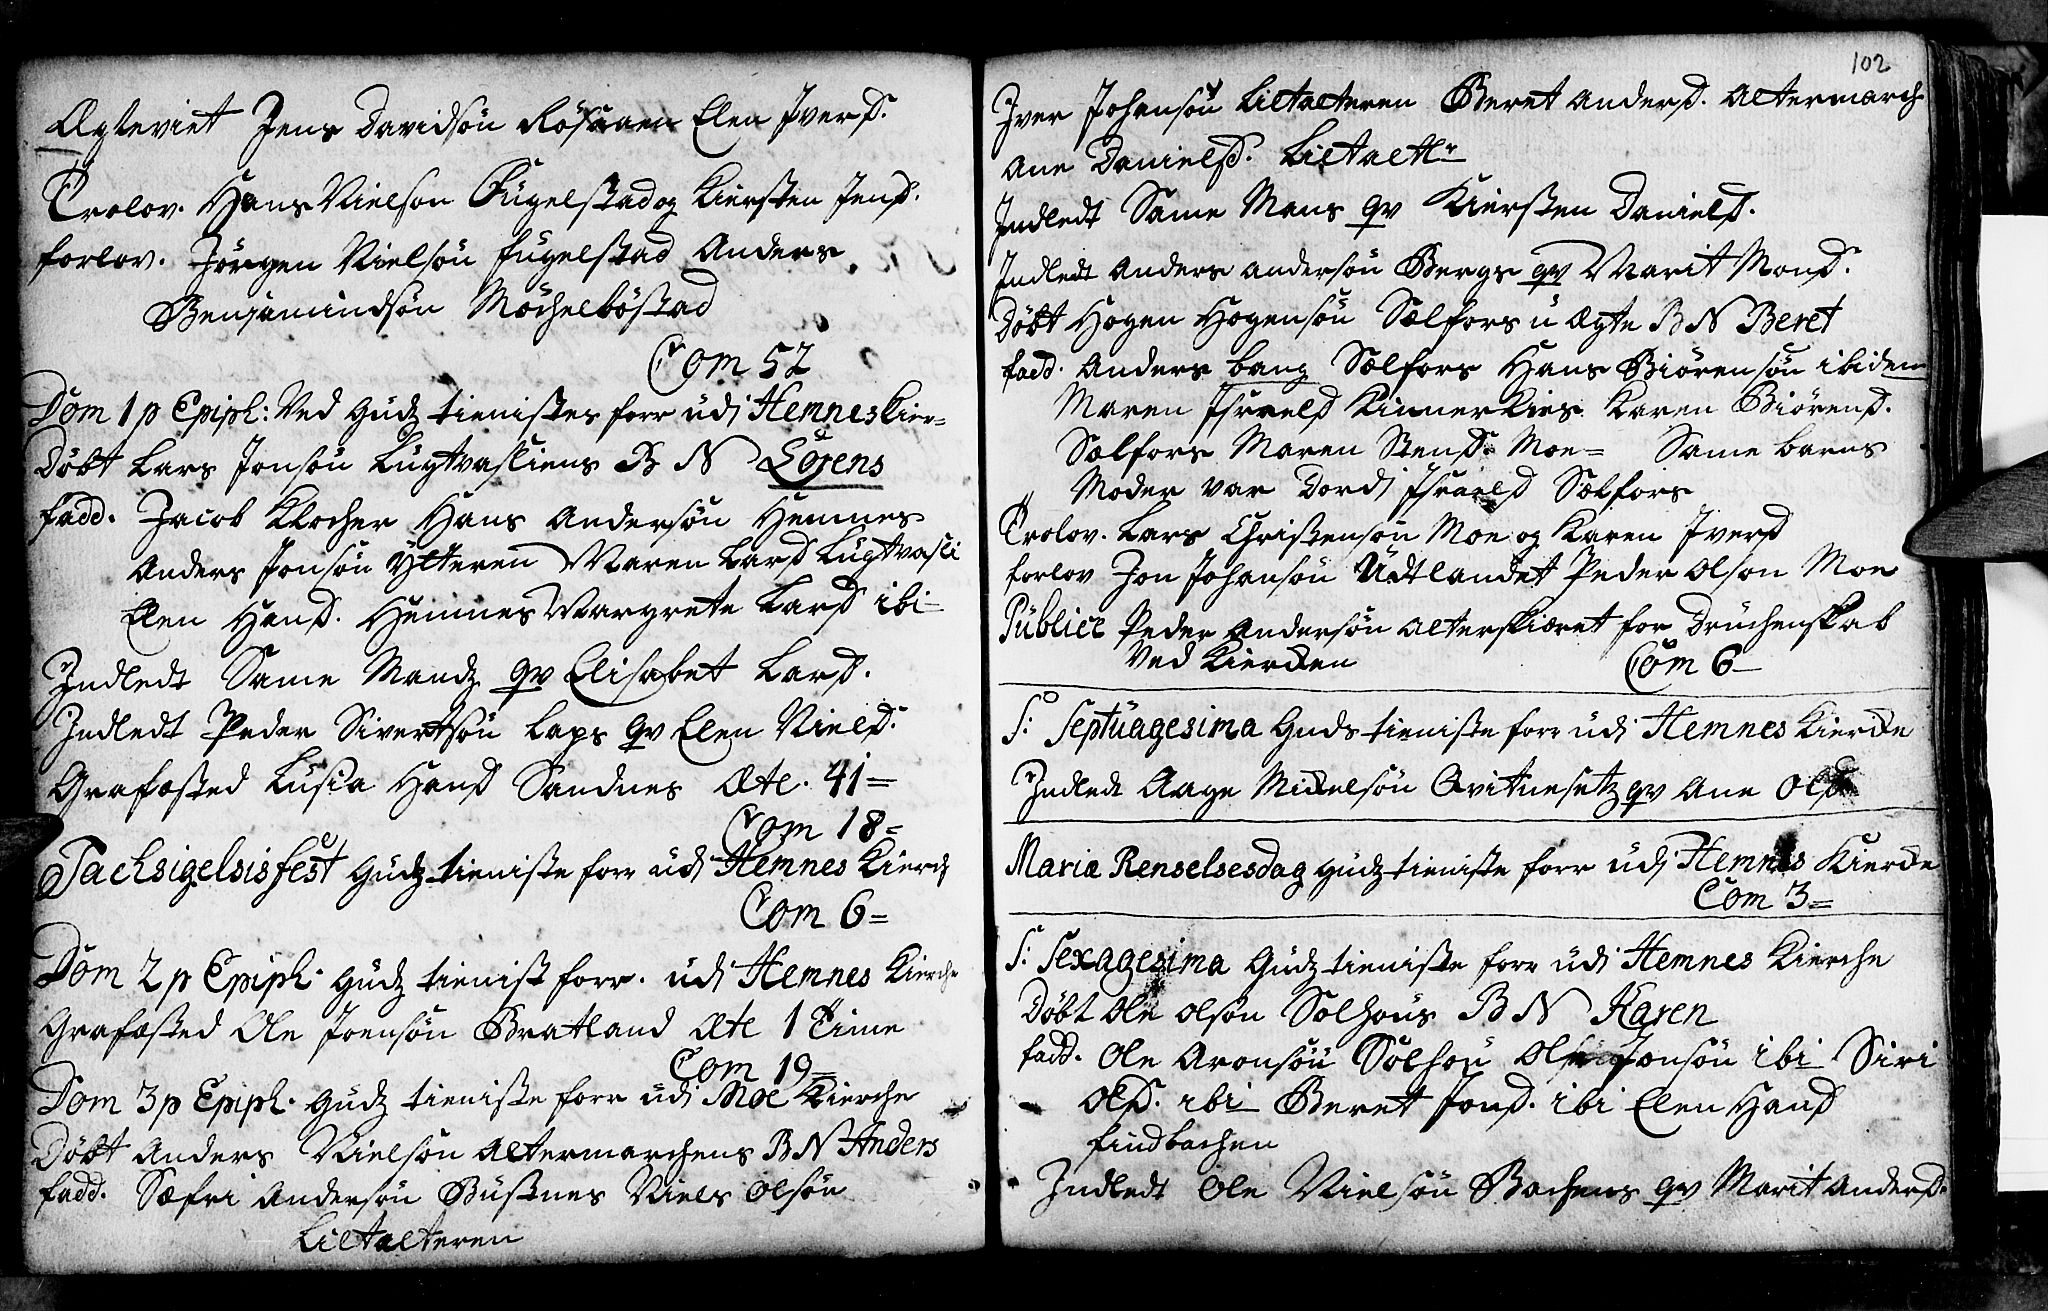 Ægteviet Jens Davidsøn Røsaaen Elen Iversd.
Trolov. Hans Nielson Fugelstad og Kiersten Jensd.
forlov. Jørgen Nielsøn fugelstad Anders
Benjamindsøn Mochelbøstad
Com 52
Dom 1 p Epiph: Ved Gudz tienistes forr udj Hemnes Kier=
Døbt Lars Jonsøn Lugtvasliens B N Lorens
fadd. Jacob Klocher Hans Andersøn Hemnes
Anders Jonsøn Ytteren Maren Larsd Lugtvasli
Elen Hansd. Hemnes Margrete Larsd ibi
Indledt Same Mandz qv Elisabet Larsd.
Indledt Peder Sivertsøn Laps qv Elen Nielsd.
Grafæsted Lusia Hansd Sandnes Æte. 41=
Com 18=
Tachsigelsisfest Gudz tieniste forr udj Hemnes Kierch
Com 6=
Dom 2 p Epiph. Gudz tienist forr. udj Hemnes Kierche
Grafæsted Ole Joensøn Bratland Æte 1 Time
Com 19=
Dom 3 p Epiph. Gudz tieniste forr udj Moe Kierche
Døbt Anders Nielsøn Altermarchens B N Anders
fadd. Sæfri Andersøn Bustnes Niels Olsøn
Liltalteren
102
Iver Johansøn Liltalteren Beret Andersd. Altermarch
Ane Danielsd. Liltaltr
Indledt Same Mans qv Kiersten Danielsd.
Indledt Anders Andersøn Bergs qv Marit Monsd.
Døbt Hogen Hogensøn Sælfors u Ægte B N Beret
fadd. Anders bang Sælfors Hans Biørensøn ibidem
Maren Israelsd Kinnerkies Karen Biørensd.
Sælfors Maren Stensd Moe= Same barns
Moder var Dordj Israelsd Sælfors
Trolov. Lars Christensøn Moe og Karen Iversd
forlov Jon Johansøn Udtlandet Peder Olson Moe
Publice Peder Andersøn Alterskiæret for Druchenskab
Ved Kierchen Com 6
S: Septuagesima Guds tieniste forr udj Hemnes Kierche
Indledt Aage Michelsøn Qvitnesetz qv Ane Olsd
Maria Renselsesdag Gudz tieniste forr udj Hemnes Kierche
Com 3=
S: Sexagesima Gudz tieniste forr udj Hemnes Kierche
Døbt Ole Olson Solhous B N Karen
fadd. Ole Aronsøn Solhou Ole Jonsøn ibi Siri
Olsd. ibi Beret Jonsd. ibi Elen Hansd
findbachen
Indledt Ole Nielsøn Bachens qv Marit Andersd.